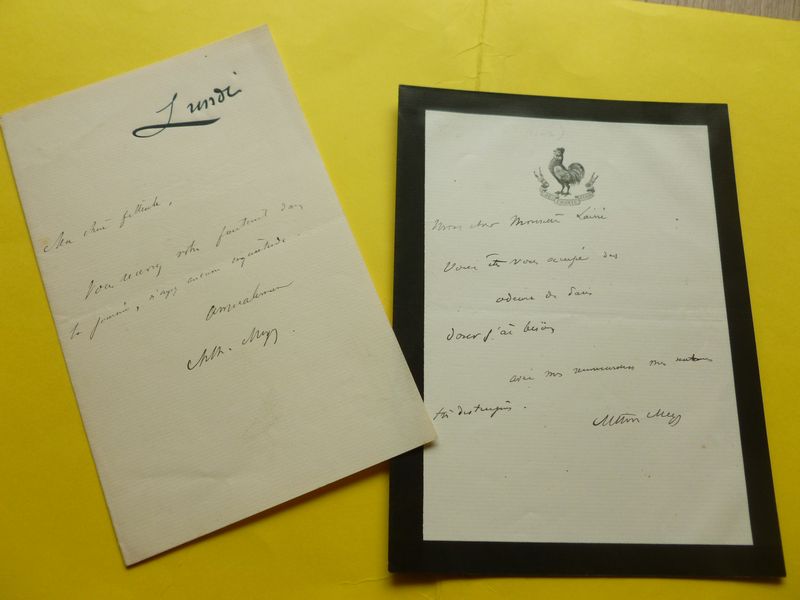 Lundi
Mon cher
Vous aurez votre fauteuil dans
la journée, n'ayez aucune inquiétude.
Amicalement
Arth. Meyer.
Mon cher Monsieur
Vous êtes vous occupé des
de Paris
dont j'ai besoin
avec mes mes
très distingués.
Arthur Meyer